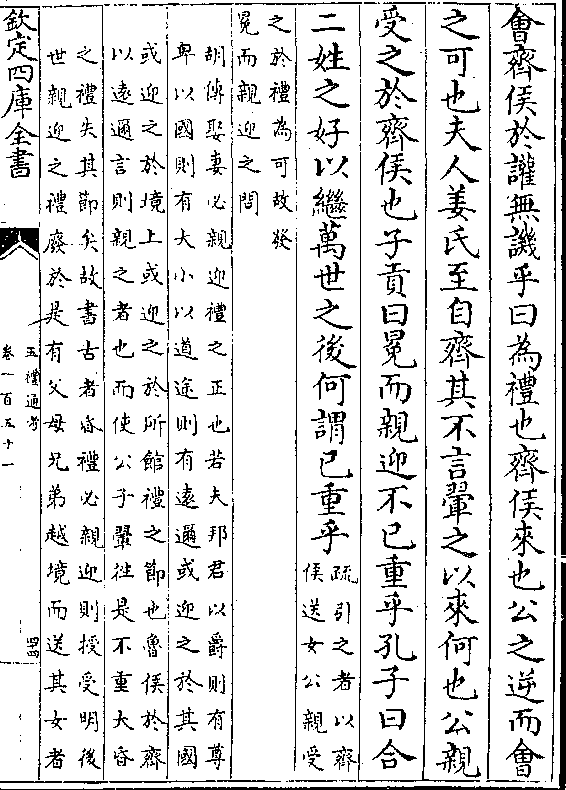 會齊侯於讙無譏乎曰為禮也齊侯來也公之逆而會
之可也夫人姜氏至自齊其不言翬之以來何也公親
受之於齊侯也子貢曰冕而親迎不已重乎孔子曰合
二姓之好以繼萬世之後何謂已重乎疏引之者以齊
侯送女公親受
之於禮為可故發
冕而親迎之問
胡傳娶妻必親迎禮之正也若夫邦君以爵則有尊
卑以國則有大小以道途則有遠邇或迎之於其國
或迎之於境上或迎之於所館禮之節也魯侯於齊
以遠邇言則親之者也而使公子翬往是不重大昏
之禮失其節矣故書古者昏禮必親迎則授受明後
世親迎之禮廢於是有父母兄弟越境而送其女者
欽定四庫全書
五禮通考
卷一百五十一
四十四